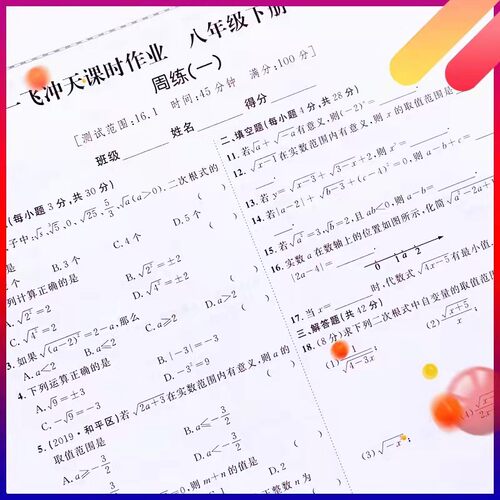 一飞冲天课时作业 八年级下册
周练(一)
[测试范围:16.1 时间:45分钟 满分:100分]
班级 姓名 得分
(每小题3分,共30分)
二次根式的
B. 3个
C. 4个
D. 5个
列计算正确的是
A. √2² = 2
B. √2² = ±2
C. √4² = 2
D. √4² = ±2
3. 如果√(a-2)² = 2-a,那么
A. a<2
B. a≤2
C. a≥2
D. a>2
4. 下列运算正确的是
A. √9 = ±3
B. |-3| = -3
C. -√9 = -3
D. -3² = 9
5. (2019·和平区)若√2a+3在实数范围内有意义,则a的
取值范围是
B. a≤-3/2
D. a<-3/2
则m+n的值是
二、填空题(每小题4分,共28分)
11. 若√a+√-a有意义,则(-2)ᵃ=
12. √x-1在实数范围内有意义,则x的取值范围是
13. 若y=√x-3+√3-x+2,则xʸ=
14. 若|a-2|+√b-3+(c-4)²=0,则a-b+c=
15. 若√a²=3,√b=2,且ab<0,则a-b=
16. 实数a在数轴上的位置如图所示,化简
|2a-4|=
0 1 a 2
17. 当x= 时,代数式√4x-5有最小值
三、解答题(共42分)
18. (8分)求下列二次根式中自变量的取值范围
(1) 1/√4-3x;
(2) √x+5/x;
(3) √-x²;